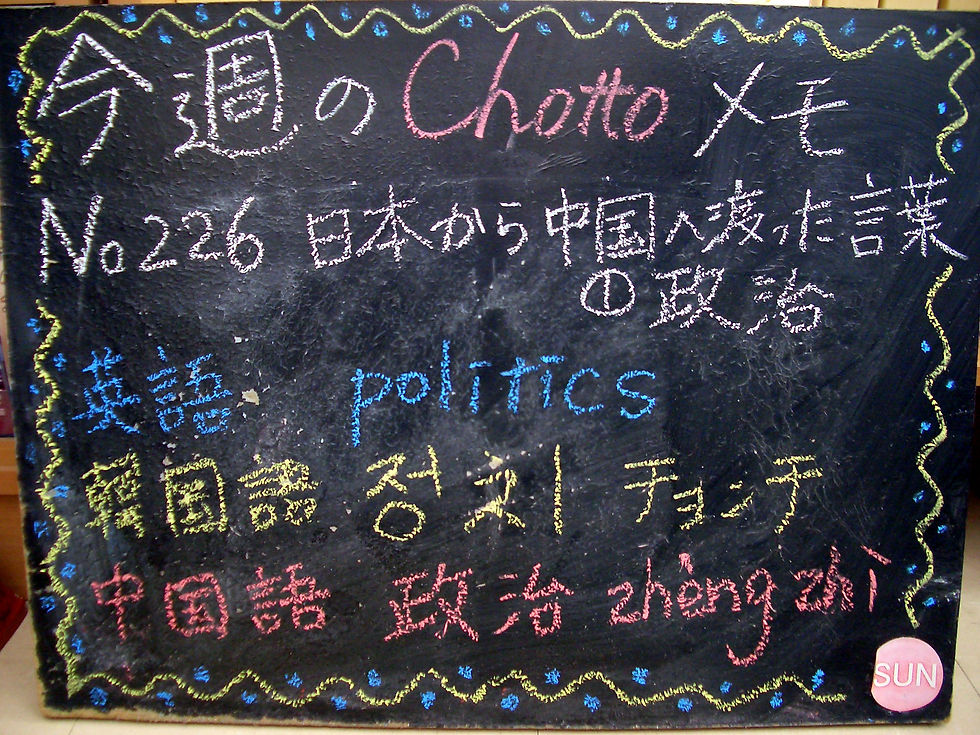 今週のChottoメモ
No226 日本から中国へ渡った言葉
①政治
英語 politics
韓国語 정치 チョンチ
中国語 政治 zhèng zhì
SUN